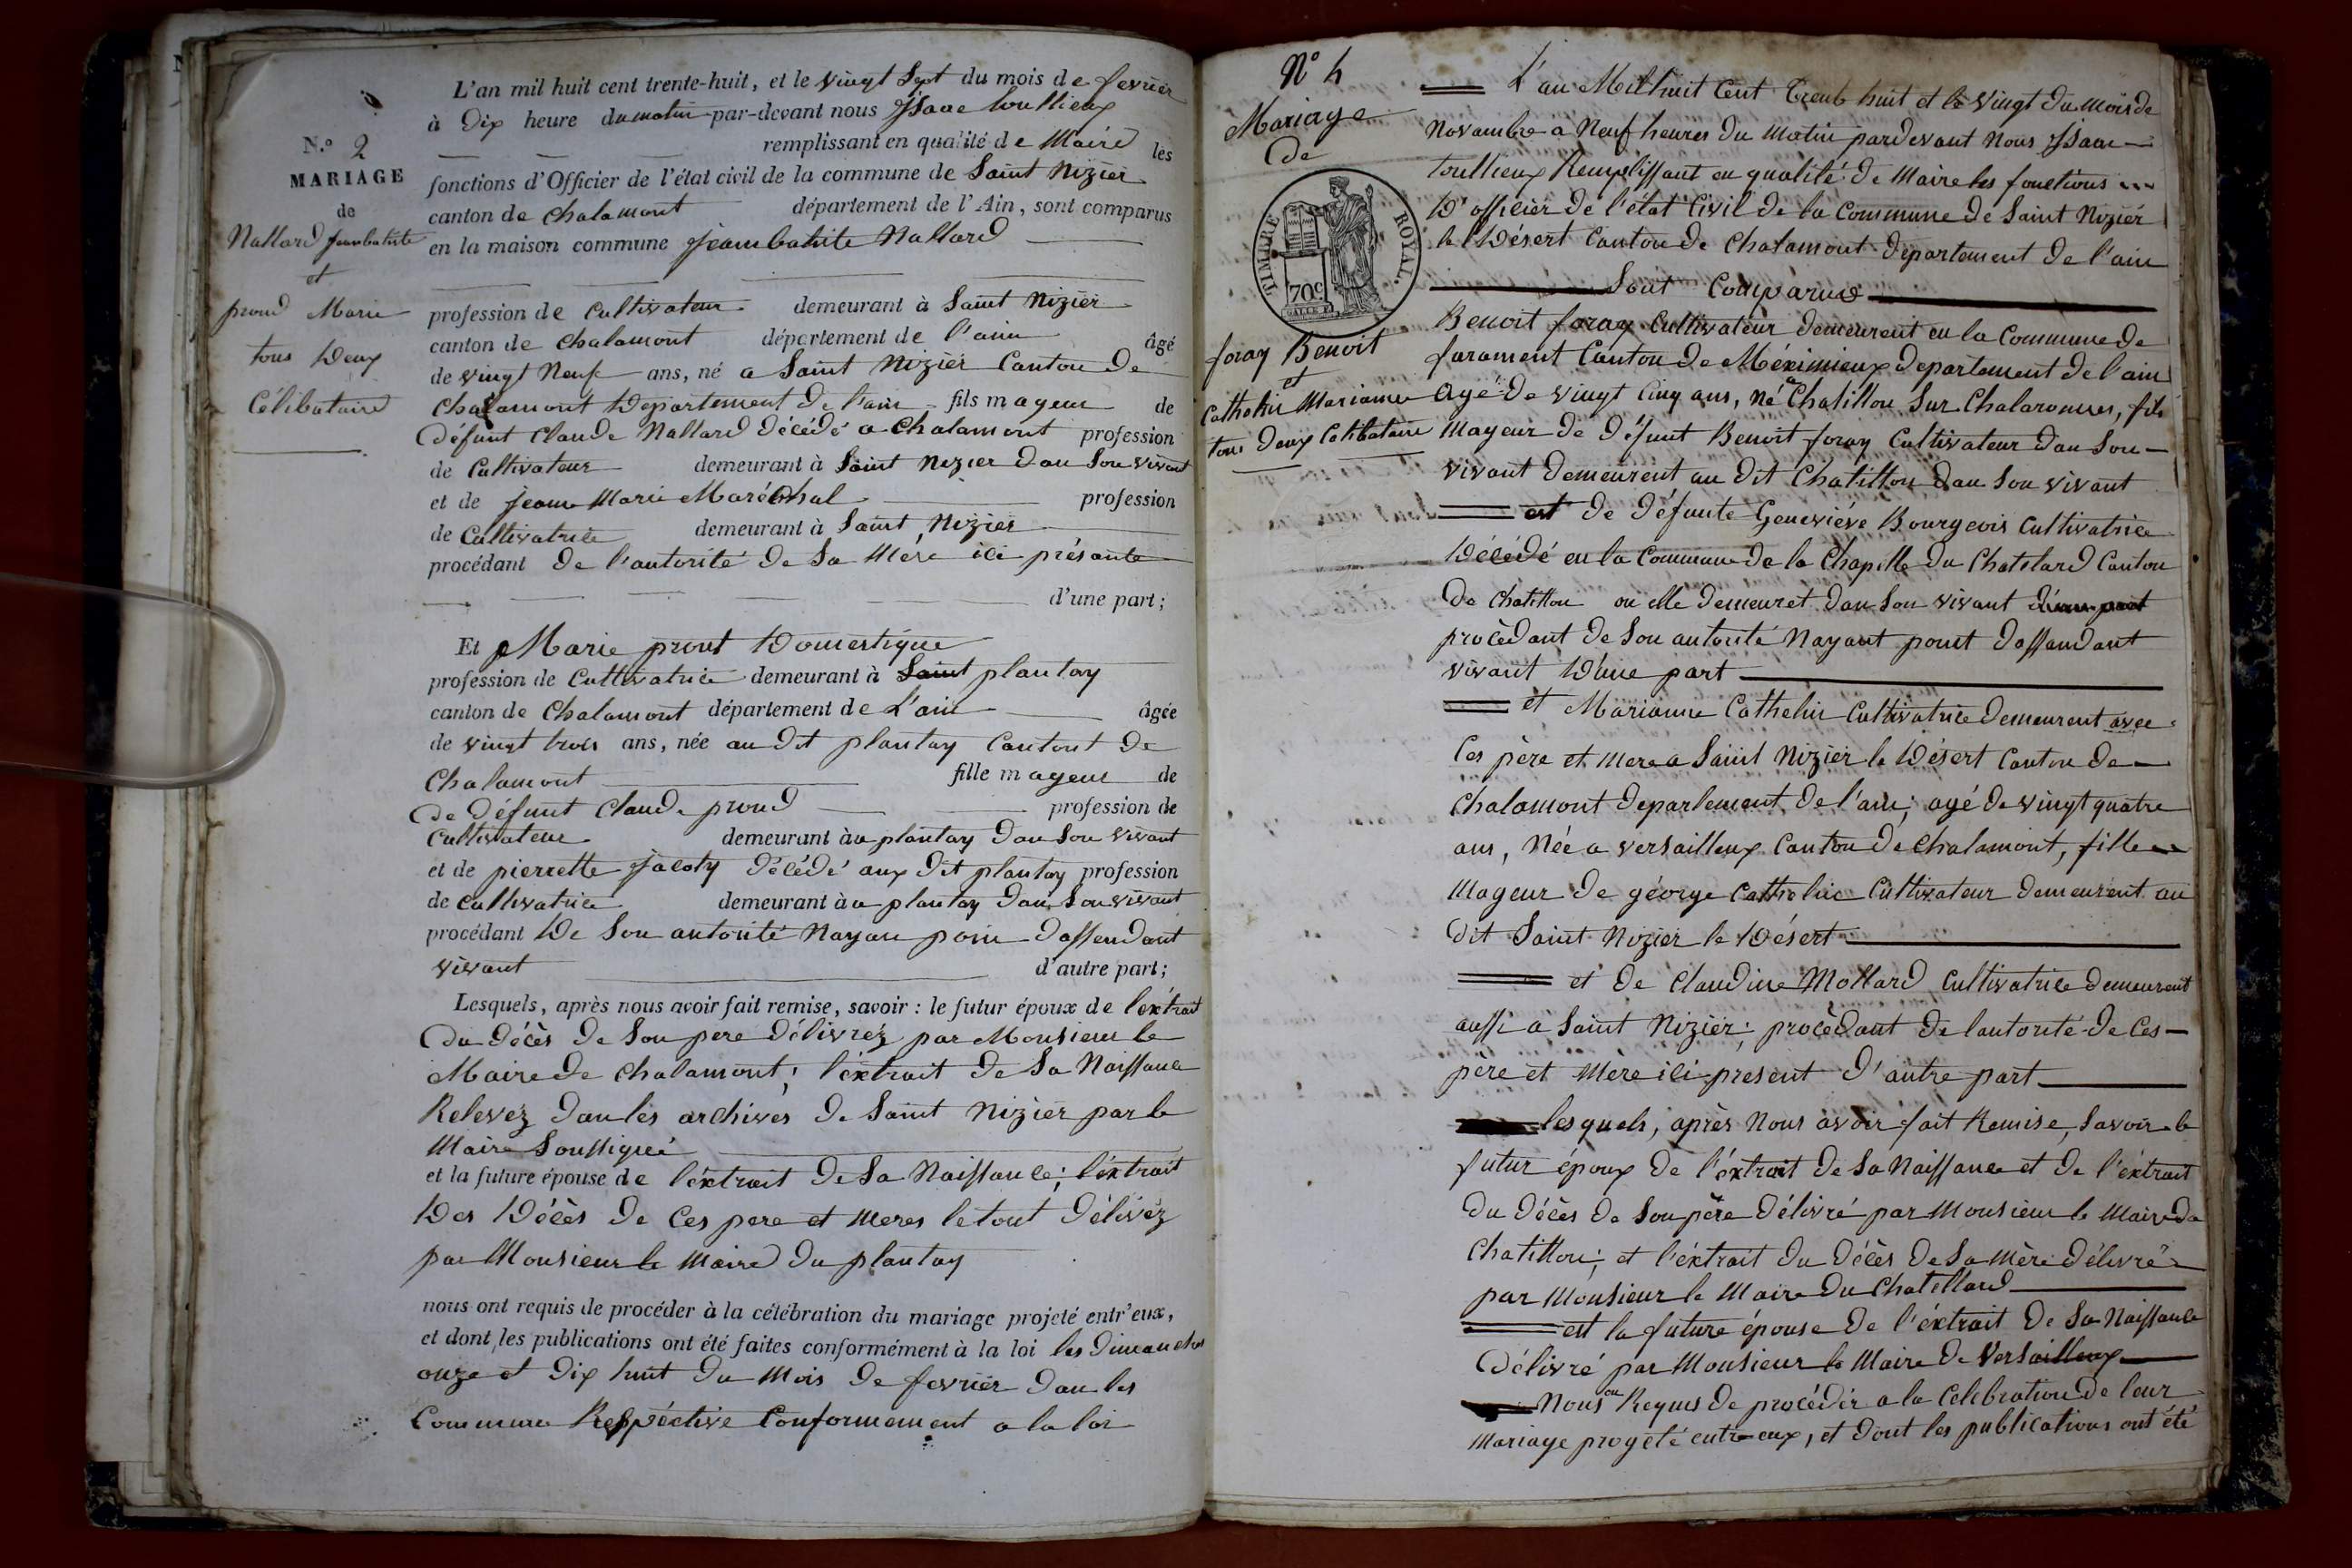 L'an mil huit cent trente-huit, et le vingt Sept du mois de fevrier
à Dix heure du matin par-devant nous Isaac toullieux
remplissant en qualité de Maire les
N.º 2
fonctions d'Officier de l'état civil de la commune de Saint Nizier
MARIAGE
canton de chalamont département de l'Ain, sont comparus
de
en la maison commune jeambatiste Nallard
Nallard jeambatiste
et
proud Marie
tous Deux
Célibataire
profession de Cultivateur demeurant à Saint Nizier
canton de chalamont département de l'ain âgé
de vingt Neuf ans, né a Saint Nizier Canton De
Chalamont Departement De l'ain fils mageur de
Défunt Claude Nallard Décédé a Chalamont profession
de Cultivateur demeurant à Saint Nizier Dan Son vivant
et de jeanne Marie Maréchal profession
de Cultivatrice demeurant à Saint Nizier
procédant De l'autorité De Sa Mère ici présante
d'une part;
Et Marie prout Domestique
profession de Cultivatrice demeurant à Saint plantay
canton de Chalamont département de L'ain âgée
de vingt trois ans, née au Dit plantay Cantont De
Chalamont fille mageur de
De Défunt Claude proud profession de
Cultivateur demeurant àu plantay Dan Son vivant
et de pierrette jacoty Décédé aux Dit plantay profession
de Cultivatrice demeurant àu plantay Dan Son vivant
procédant De Son autorité Nayan poin Dassendant
vivant d'autre part;
Lesquels, après nous avoir fait remise, savoir : le futur époux de l'éxtrait
Du décès De Son pere Délivréz par Monsieur le
Maire De Chalamont; l'éxtrait De Sa Naissance
Relevez Dan les archives De Saint Nizier par le
Maire Soussigné
et la future épouse de l'éxtrait De Sa Naissance; l'éxtrait
Des Décès De Ces pere et Meres le tout Délivéz
par Monsieur le Maire Du plantay
nous ont requis de procéder à la célébration du mariage projeté entr'eux,
et dont les publications ont été faites conformément à la loi les Dimanches
onze et Dix huit Du Mois De fevrier Dan les
Commune Respéctive Conformement a la loi
Nº 4
Mariage
De
TIMBRE ROYAL.
70c
foray Benoit
et
Cathelin Marianne
tous Deux Célibataire
L'an Mil huit Cent Trente huit et le vingt Du mois de
Novambre a Neuf heures Du Matin pardevant Nous Isaac
toullieux Remplissant en qualité De Maire les fonctions
D'officier De l'état Civil De la Commune De Saint Nizier
le Désert Canton De Chalamont Departement De l'ain
Sont Comparus
Benoit foray Cultivateur Demeurent en la Commune De
faramant Canton De Méximieux Departement De l'ain
Agé De vingt Cinq ans, né a Chatillon Sur Chalaronnes, fils
Mageur De Défunt Benoit foray Cultivateur Dan Son
vivant Demeurent au Dit Chatillon Dan Son vivant
est De Défunte Geneviéve Bourgeois Cultivatrice
Décédé en la Commune De la Chapelle Du Chatelard Canton
De Chatillon ou elle Demeuret Dan Son vivant D'une part
procèdant De Son autorité Nayant point Dassandant
vivant D'une part
et Marianne Cathelin Cultivatrice Demeurent avec
Ces père et Mere a Saint Nizier le Désert Canton De
Chalamont Departement De l'ain; agé De vingt quatre
ans, Née a versailleux Canton De Chalamont, fille
Mageur De géorge Cathelin Cultivateur Demeurent au
Dit Saint Nizier le Désert
et De Claudine Mollard Cultivatrice Demeurent
aussi a Saint Nizier; procèdant De lautorité De Ces
père et Mère ici present D'autre part
lesquels, après Nous avoir fait Remise, Savoir le
futur époux De l'éxtrait De Sa Naissance et De l'éxtrait
Du Décès De Son père Délivré par Monsieur le Maire De
Chatillon; et l'éxtrait Du Décès De Sa Mère Délivré
par Monsieur le Maire Du Chatellard
est la future épouse De l'éxtrait De Sa Naissance
Délivré par Monsieur le Maire De Versailleux
Nous on Requis De procédér a la Celebration De leur
Mariage progeté entre eux, et Dont les publications ont été